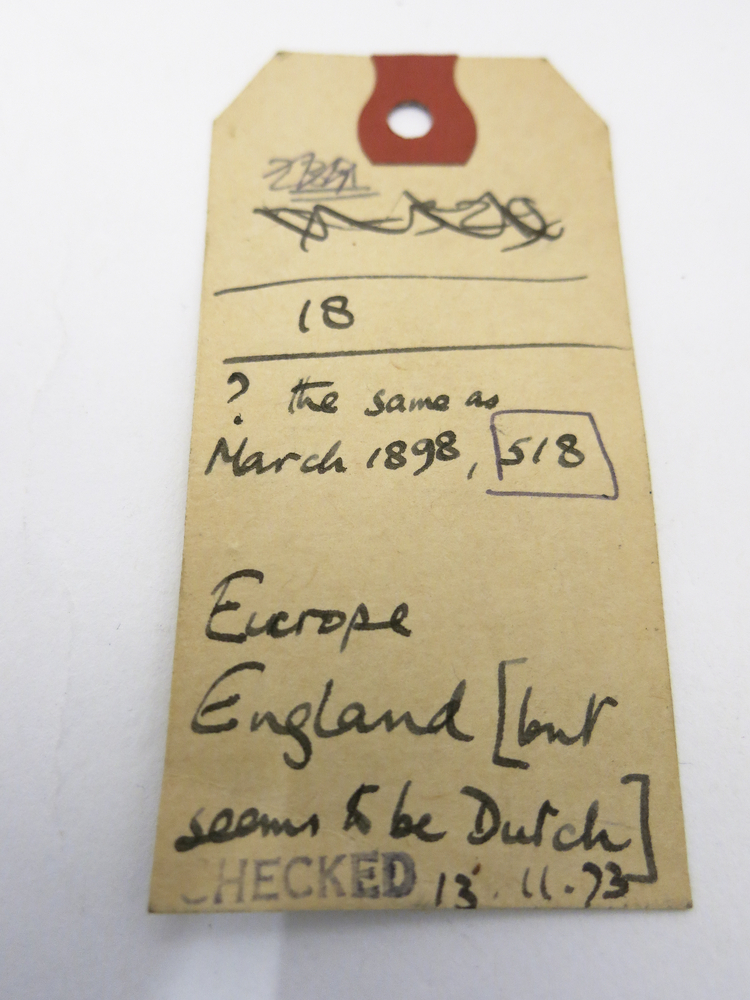 18
? the same as
March 1898, 518
Europe
England [but
seems to be Dutch]
CHECKED 13.11.73